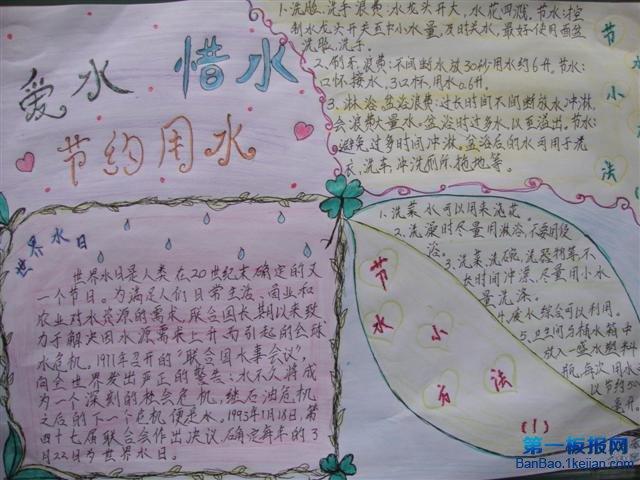 爱水 惜水
节约用水
1.洗脸、洗手 浪费:水龙头开大,水花四溅。节水:控
制水龙头开关至中小水量,及时关水,最好使用面盆
洗脸、洗手。
2.刷牙 浪费:不间断水放30秒,用水约6升。节水:
口杯接水,3口杯,用水0.6升。
3.淋浴、盆浴浪费:过长时间不间断放水冲淋,
会浪费大量水。盆浴时过多水,以至溢出。节水:
避免过多时间冲淋。盆浴后的水可用于洗
衣、洗车、冲洗厕所、拖地等。
节
水
小
方
法
世界水日
世界水日是人类在20世纪末确定的又
一个节日。为满足人们日常生活、商业和
农业对水资源的需求,联合国长期以来致
力于解决因水资源需求上升而引起的全球
水危机。1977年召开的“联合国水事会议”,
向全世界发出严正的警告:水不久将成
为一个深刻的社会危机,继石油危机
之后的下一个危机便是水。1993年1月18日,第
四十七届联合会作出决议,确定每年的3
月22日为世界水日。
1.洗菜水可以用来浇花。
2.洗澡时尽量用淋浴,不要用
浴。
3.洗菜、洗碗、洗器物等不
长时间冲洗,尽量用小水
量洗涤。
4.废水综合可以利用。
5.卫卫间马桶水箱中
放入一盛水塑料
瓶,每次用水
以节约
毫升。
节
水
小
方
法
(1)
第一板报网
BanBao.1kejian.com